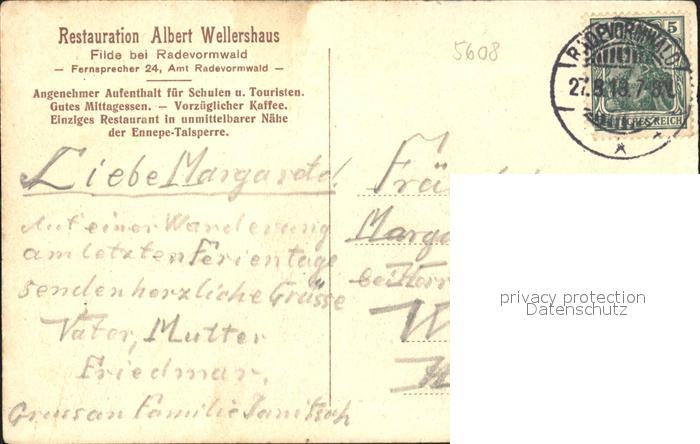 Restauration Albert Wellershaus
Filde bei Radevormwald
— Fernsprecher 24, Amt Radevormwald —
Angenehmer Aufenthalt für Schulen u. Touristen.
Gutes Mittagessen. — Vorzüglicher Kaffee.
Einziges Restaurant in unmittelbarer Nähe
der Ennepe-Talsperre.
5608
5
RADEVORMWALD
27.8.18.7-8
DEUTSCHES REICH
Liebe Margarete!
Auf einer Wanderung
am letzten Ferientage
senden herzliche Grüsse
Vater, Mutter
Friedmar.
Gruss an Familie
Fräu
Marga
bei Herr
W
privacy protection
Datenschutz